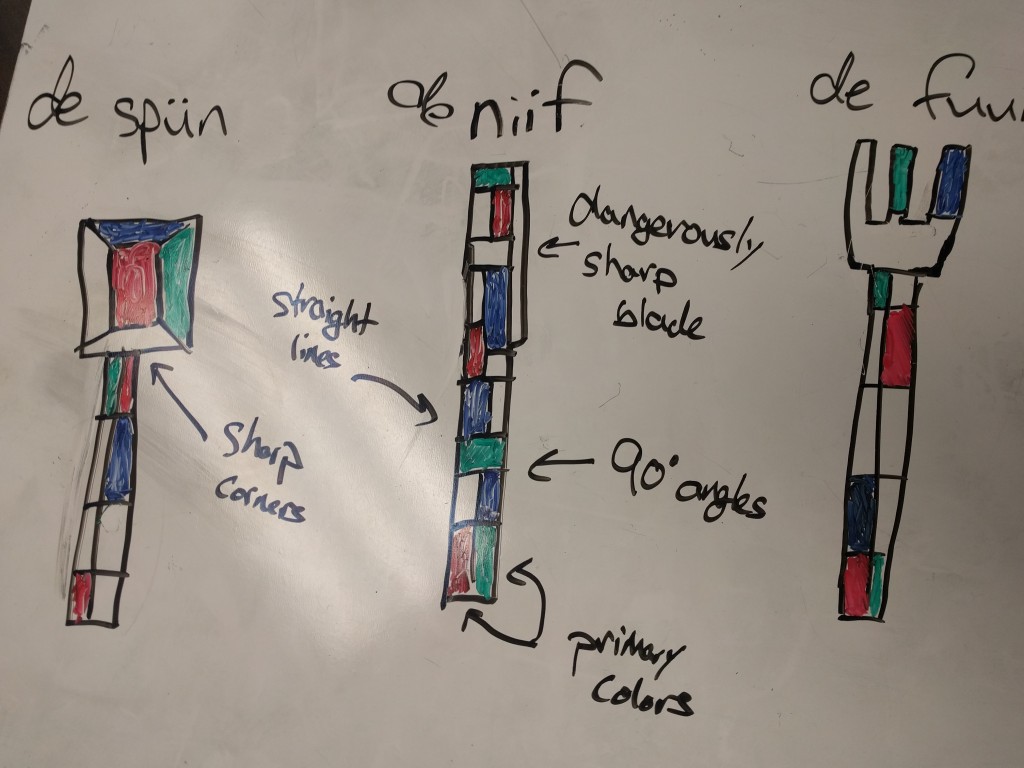 de spün
de niif
de fuu
dangerously
sharp
blade
straight
lines
sharp
corners
90° angles
primary
colors